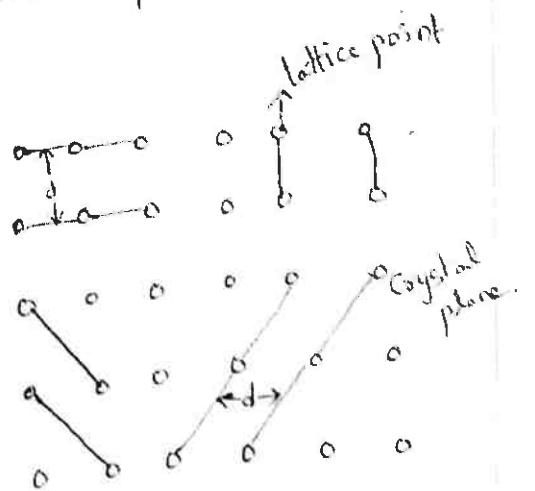 lattice point
d
Crystal
plane.
d